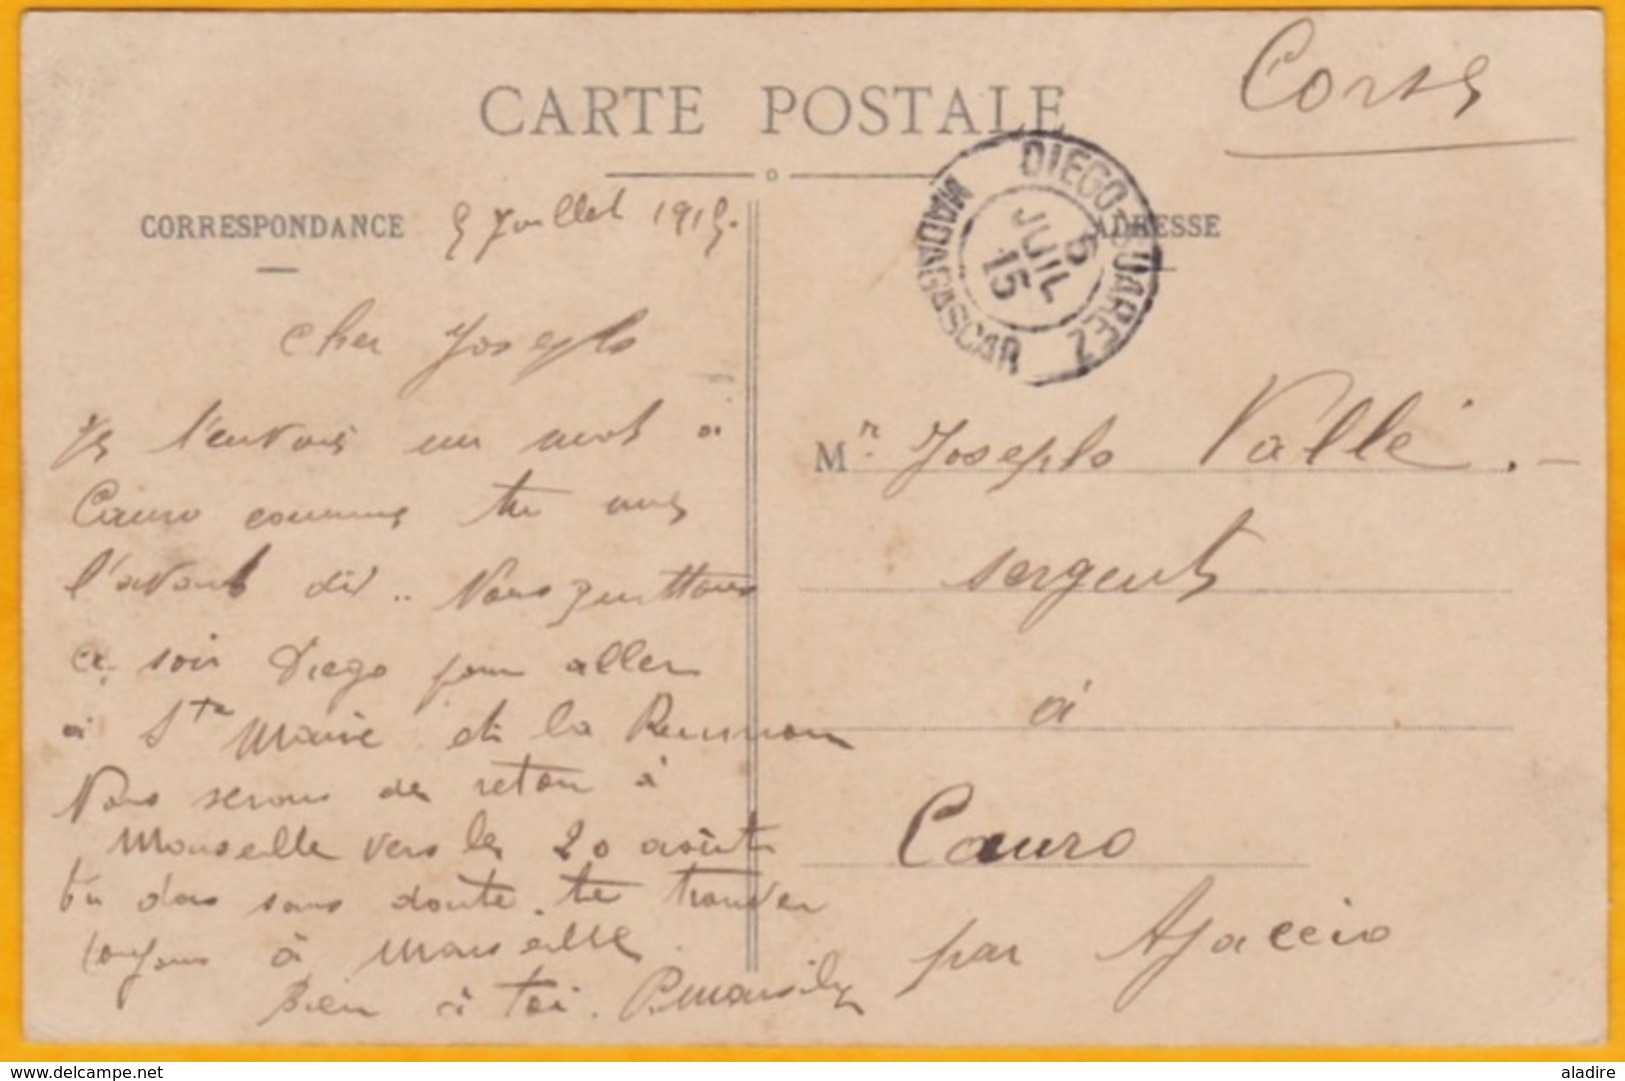 Corse
CARTE POSTALE
CORRESPONDANCE
ADRESSE
5 Juillet 1915.
DIEGO-SUAREZ
5
JUIL
15
MADAGASCAR
Cher Joseph
Je t'envois un mot à
Cauro comme tu me
l'avais dit .. Nous quittons
ce soir Diego pour aller
à Ste Marie et la Reunion
Nous serons de retour à
Marseille vers le 20 août
tu dois sans doute te trouver
toujours à Marseille.
Bien à toi.
Mr. Joseph Vallé.
sergent
à
Cauro
par Ajaccio
delcampe.net
aladire